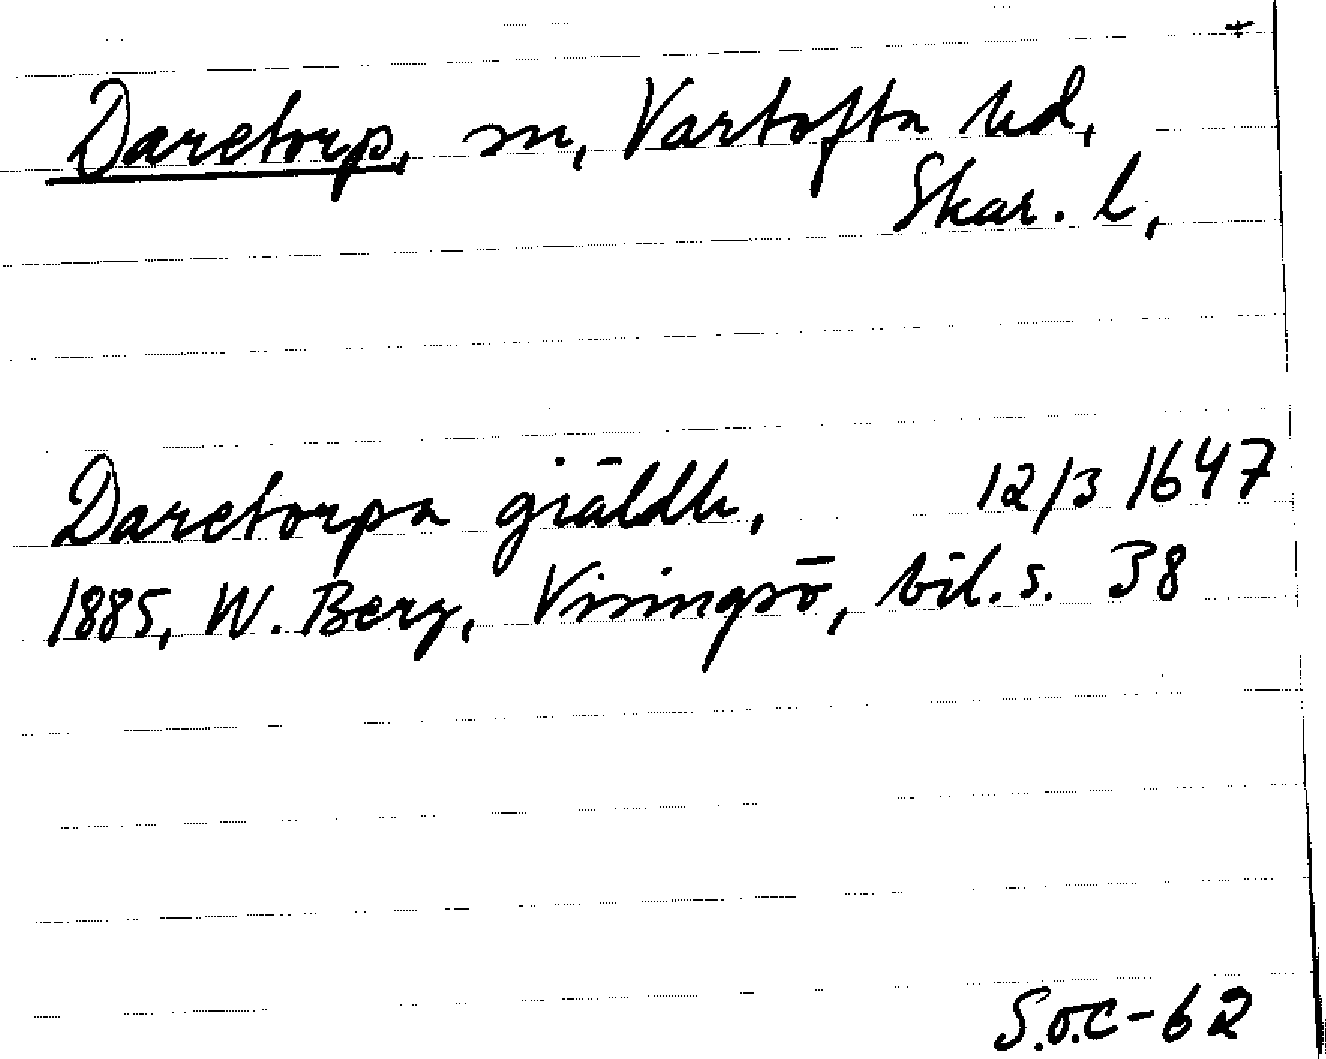 Daretorp, sn, Vartofta hd,
Skar. l,
Daretorpa giäldh, 12/3 1647
1885, W. Berg, Visingsö, bil. s. 38
S.O.C-62